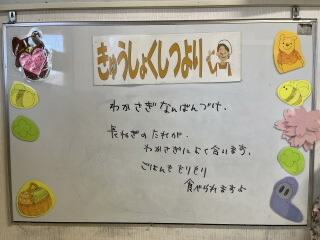 きゅうしょくしつより
わかさぎなんばんづけ.
長ねぎのたれが.
わかさぎによく合います.
ごはんをもりもり
食べられますよ